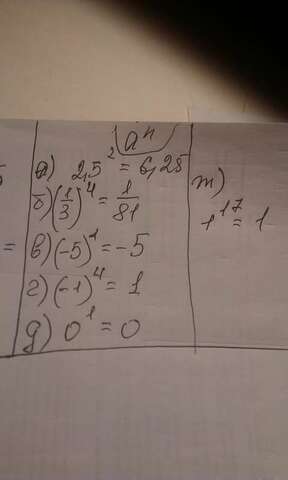 aⁿ
а) 2,5² = 6,25
б) (1/3)⁴ = 1/81
в) (-5)¹ = -5
г) (-1)⁴ = 1
д) 0¹ = 0
ж)
1¹⁷ = 1
=